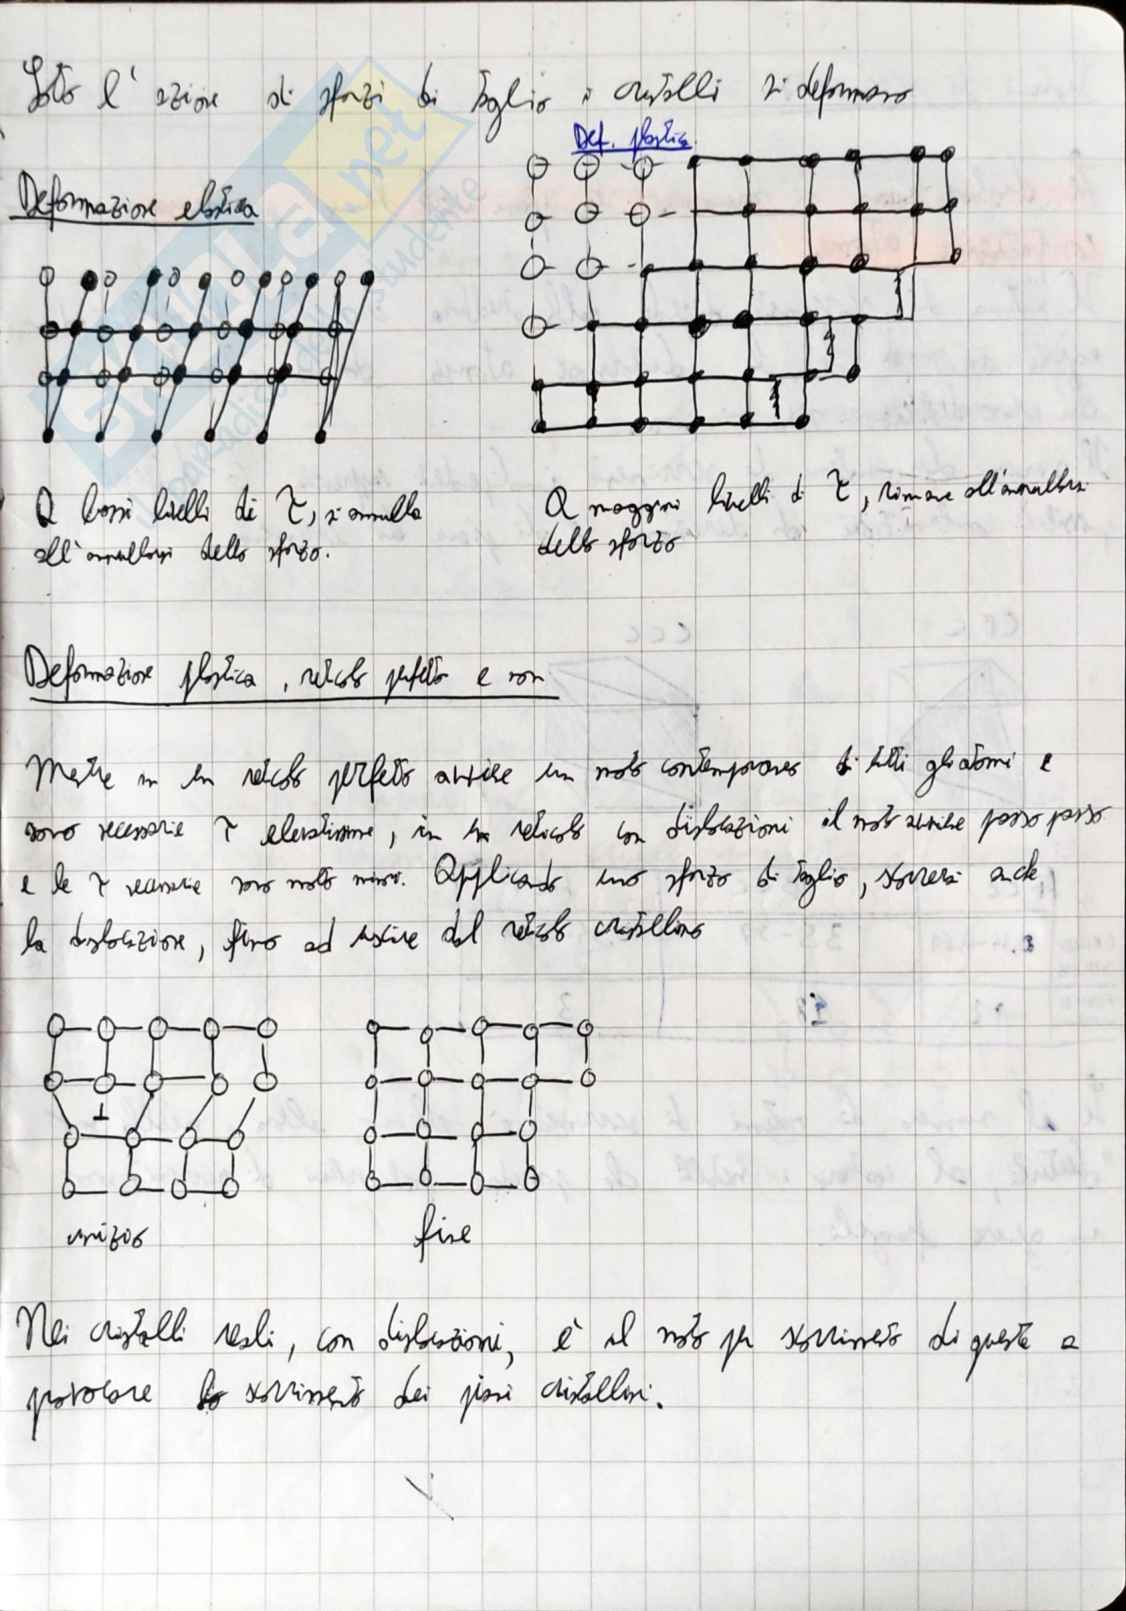 Sotto l'azione di sforzi di taglio i cristalli si deformano
Def. plastica
Deformazione elastica
A bassi livelli di τ, si annulla
all'annullarsi dello sforzo.
A maggiori livelli di τ, rimane all'annullarsi
dello sforzo
Deformazione plastica, reticolo perfetto e non
Mentre in un reticolo perfetto avviene un moto contemporaneo di tutti gli atomi e
sono necessarie τ elevatissime, in un reticolo con dislocazioni il moto avviene passo passo
e le τ necessarie sono molto minori. Applicando uno sforzo di taglio, scorrerà anche
la dislocazione, fino ad uscire dal reticolo cristallino
⊥
inizio
fine
Nei cristalli reali, con dislocazioni, è il moto per scorrimento di queste a
provocare lo scorrimento dei piani cristallini.